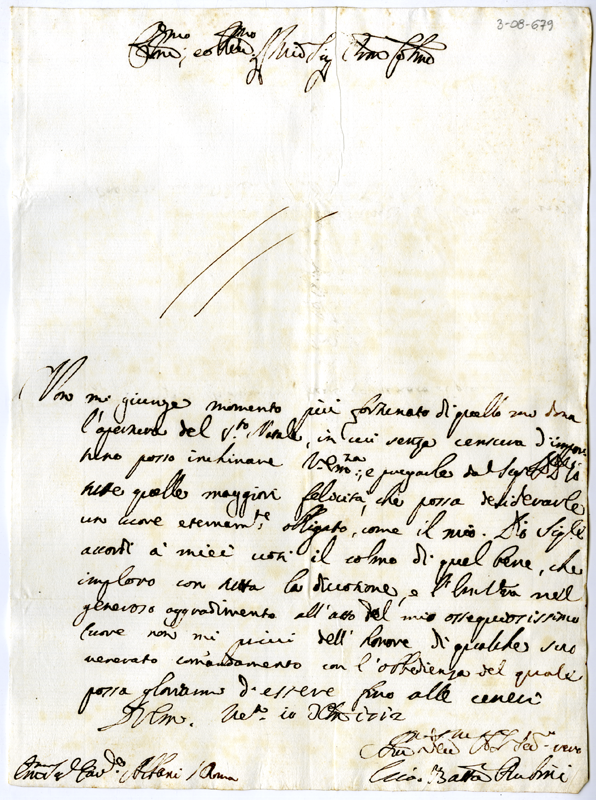 3-08-679
Emo, e Revmo Sig.r Sig.r Pron Colmo
Non mi giunge momento più fortunato di quello mi dona
l'apertura del S.to Natale, in cui senza censura d'impor
tuno posso inchinare V. Em.za, e pregarle dal Sig.re Iddio
tutte quelle maggiori felicità, che possa desiderarle
un cuore eternam.te obligato, come il mio. Dio Sig.re
accordi a' miei voti il colmo di quel bene, che
imploro con tutta la divotione, e l'Em.za V.ra nel
generoso aggradimento all'atto del mio ossequiosissimo
cuore non mi privi dell'honore di qualche suo
venerato comandamento con l'obbedienza del quale
possa gloriarmi d'essere fino alle ceneri
Di V. Em.
10 Xbre 1712
Gio: Batta Rubini
Em.o Sig.r Card.e Albani Roma